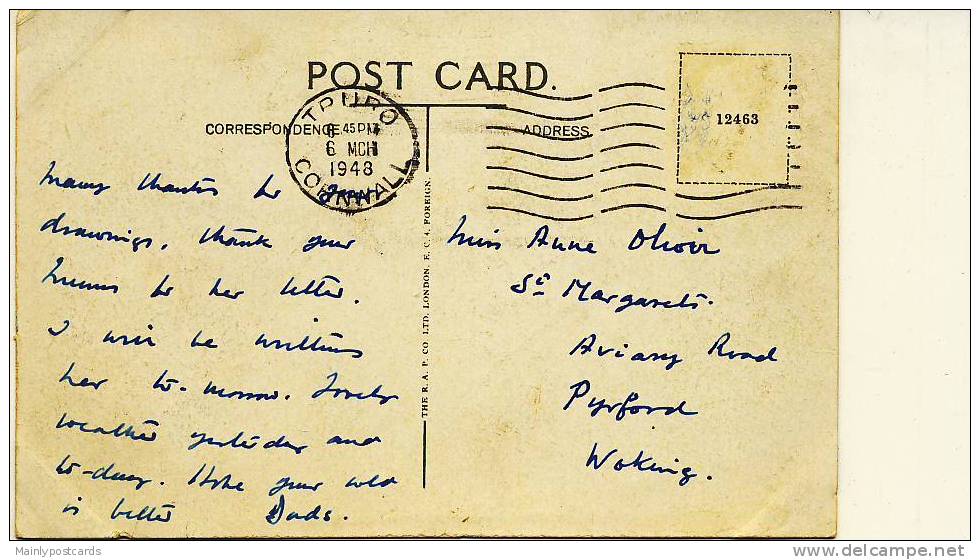 POST CARD.
CORRESPONDENCE.
ADDRESS
TRURO
45PM
6 MCH
1948
CORNWALL
12463
Many thanks for
drawings. Thank your
for her letter.
I will be writting
her to-morrow. Lovely
weather yesterday and
to-day. Hope your cold
is better Dads.
THE R. A. P. CO LTD. LONDON. E. C. 4. FOREIGN.
Miss Anne
St Margarets.
Aviary Road
Pyrford
Woking.
Mainlypostcards
www.delcampe.net